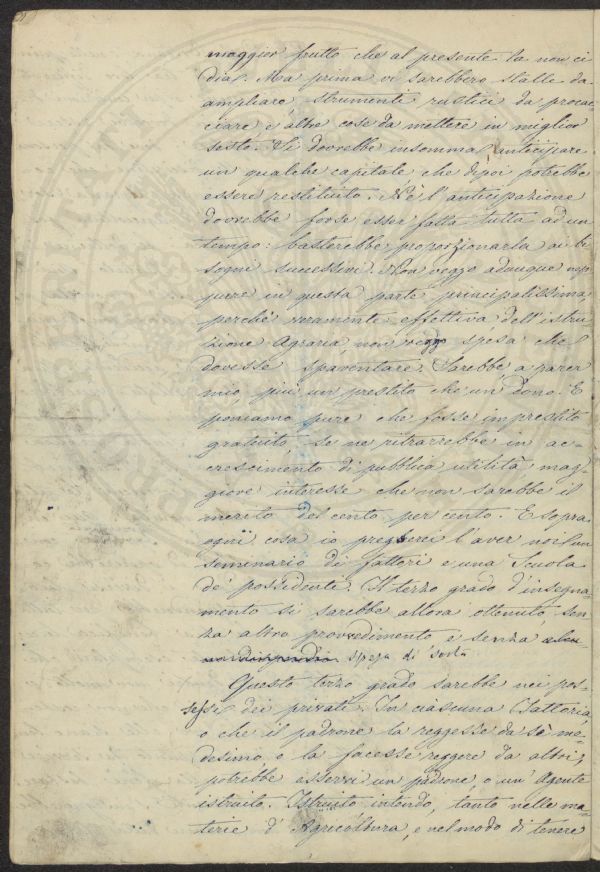 maggior frutto che al presente la non ci
dia. Ma prima vi sarebbero stalle da
ampliare, strumenti rustici da procac-
ciare e altre cose da mettere in miglior
sesto. Si dovrebbe insomma anticipare
un qualche capitale che dipoi potrebbe
essere restituito. Nè l'anticipazione
dovrebbe forse esser fatta tutta ad un
tempo: basterebbe proporzionarla ai bi
sogni successivi. Non veggo adunque nep
pure in questa parte principalissima,
perchè veramente effettiva dell'istru
zione Agraria non veggo spesa che
dovesse spaventare. Sarebbe a parer
mio più un prestito che un dono. E
poniamo pure che fosse imprestito
gratuito, se ne ritrarrebbe in ac-
crescimento di pubblica utilità mag-
giore interesse che non sarebbe il
merito del cento per cento. E sopra
ogni cosa io pregerei l'aver noi un
seminario di fattori e una Scuola
de' possidenti. Il terzo grado d'insegna-
mento si sarebbe allora ottenuto, sen
za altro provvedimento e senza alcu-
un dispendio spesa di sorta
Questo terzo grado sarebbe nei pos-
sessi dei privati. In ciascuna Fattoria
o che il padrone la reggesse da sè me-
desimo, o la facesse reggere da altri;
potrebbe esservi un padrone, o un Agente
istruito. Istruito intendo, tanto nelle ma
terie d'Agricoltura, e nel modo di tenere